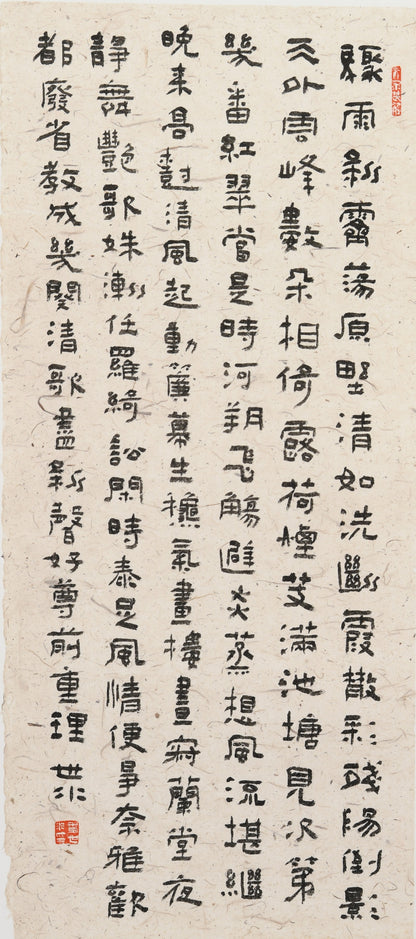 驟雨新霽蕩原野清如洗斷霞散彩殘陽倒影
天外雲峰數朵相倚露荷煙芰滿池塘見次第
幾番紅翠當是時河朔飛觴避炎蒸想風流堪繼
晚來高樹清風起動簾幕生龝氣畫樓晝寂蘭堂夜
靜舞豔歌姝漸任羅綺訟閑時泰足風情便爭奈雅歡
都廢省教成幾闋清歌盡新聲好尊前重理